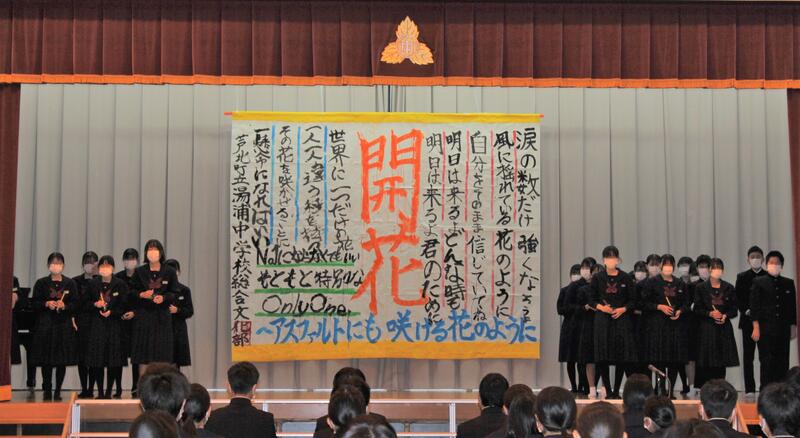 涙の数だけ強くなろうよ
風に揺れている花のように
自分をそのまま信じていてね
明日は来るよどんな時も
明日は来るよ君のために
開花
世界に一つだけの花
一人一人違う種を持つ
その花を咲かせることに
一懸命になればいい
No.1にならなくてもいい
もともと特別な
Only One
〜アスファルトにも咲ける花のように
芦北町立湯浦中学校総合文化部